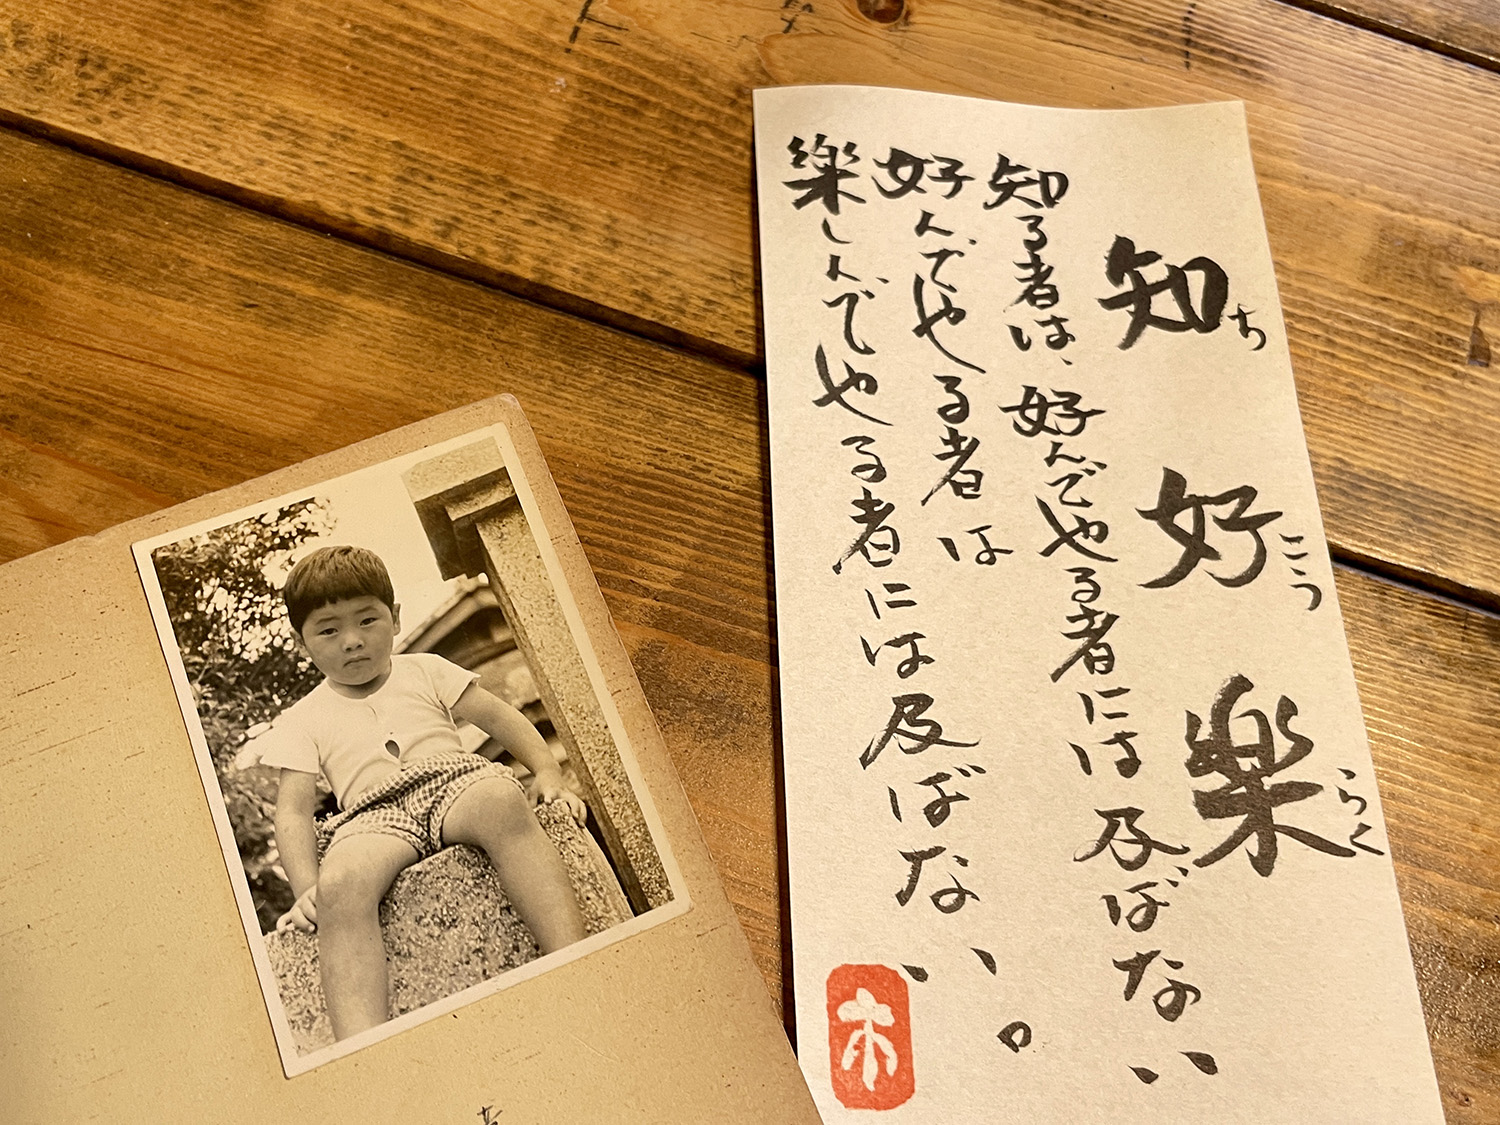 知好樂
ちこうらく
知る者は、好んでやる者には及ばない
好んでやる者は
樂しんでやる者には及ばない。
木